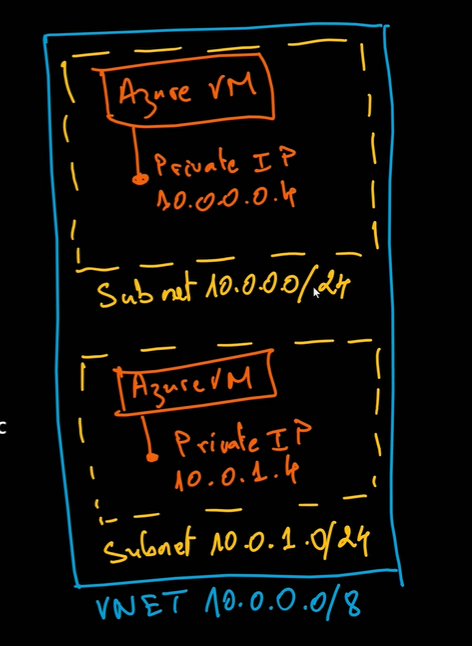 Azure VM
Private IP
10.0.0.4
Subnet 10.0.0.0/24
Azure VM
c
Private IP
10.0.1.4
Subnet 10.0.1.0/24
VNET 10.0.0.0/8